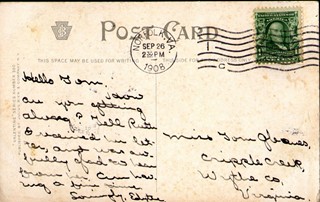 POST CARD
THIS SPACE MAY BE USED FOR WRITING
NORFOLK, VA.
SEP 26
1908
Hello Tom
how
are you getting
along? Tell Ruth
I received her let-
ter, and was aw-
fully glad to hear
from her. Am hav-
ing a fine time.
Miss Tom
Cripple Creek,
Wythe Co,
Virginia.